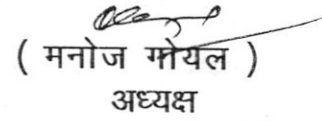 ( मनोज गोयल )
अध्यक्ष